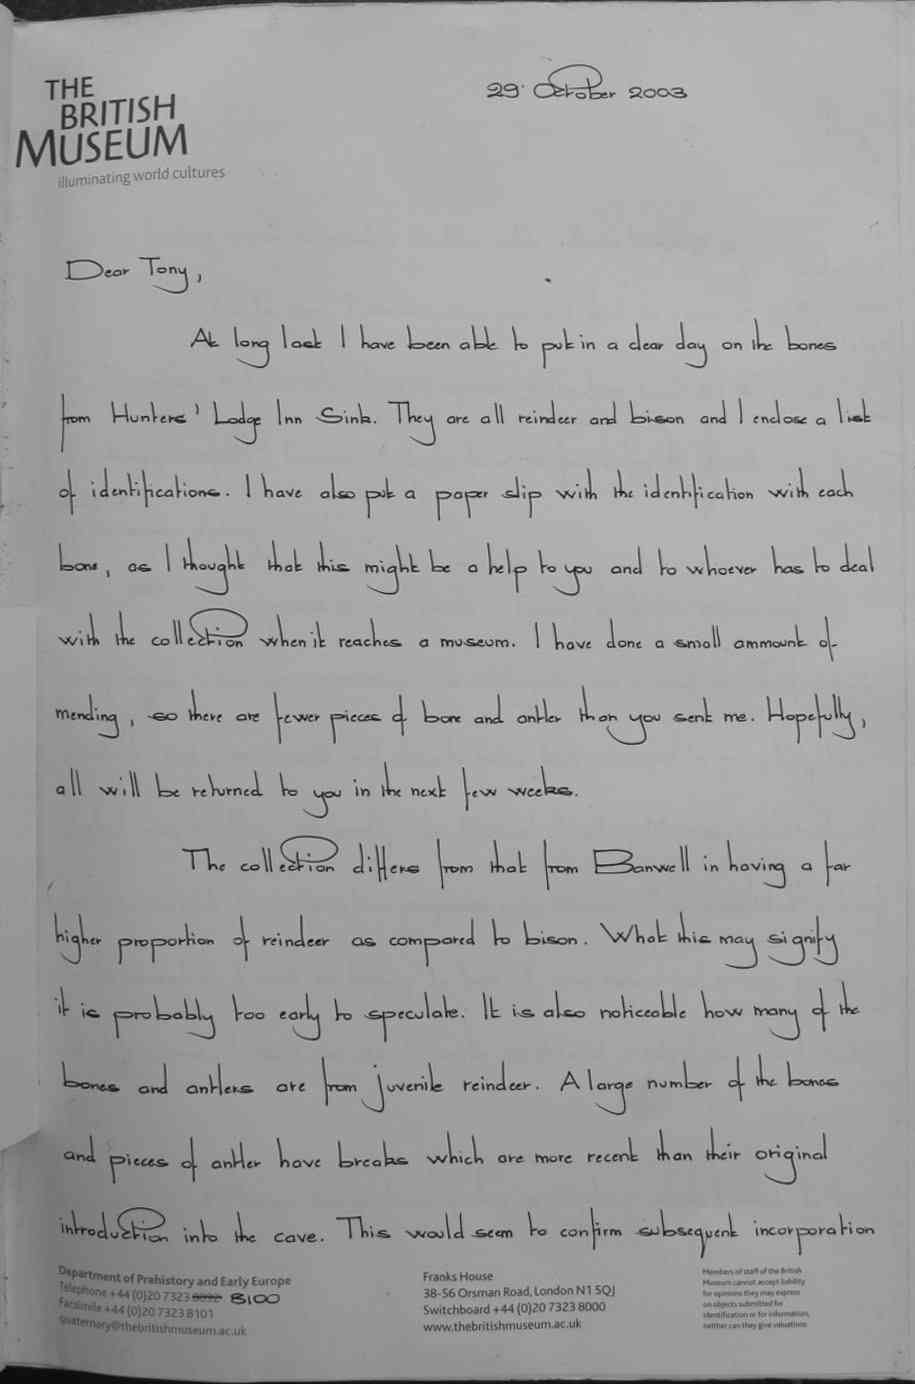 THE
BRITISH
MUSEUM
illuminating world cultures
29 October 2003
Dear Tony,
At long last I have been able to put in a clear day on the bones
from Hunters' Lodge Inn Sink. They are all reindeer and bison and I enclose a list
of identifications. I have also put a paper slip with the identification with each
bone, as I thought that this might be a help to you and to whoever has to deal
with the collection when it reaches a museum. I have done a small ammount of
mending, so there are fewer pieces of bone and antler than you sent me. Hopefully,
all will be returned to you in the next few weeks.
The collection differs from that from Banwell in having a far
higher proportion of reindeer as compared to bison. What this may signify
it is probably too early to speculate. It is also noticeable how many of the
bones and antlers are from juvenile reindeer. A large number of the bones
and pieces of antler have breaks which are more recent than their original
introduction into the cave. This would seem to confirm subsequent incorporation
Department of Prehistory and Early Europe
Telephone +44 (0)20 7323 8100
Facsimile +44 (0)20 7323 8101
quaternary@thebritishmuseum.ac.uk
Franks House
38-56 Orsman Road, London N1 5QJ
Switchboard +44 (0)20 7323 8000
www.thebritishmuseum.ac.uk
Members of staff of the British
Museum cannot accept liability
for opinions they may express
on objects submitted for
identification or for information,
neither can they give valuations